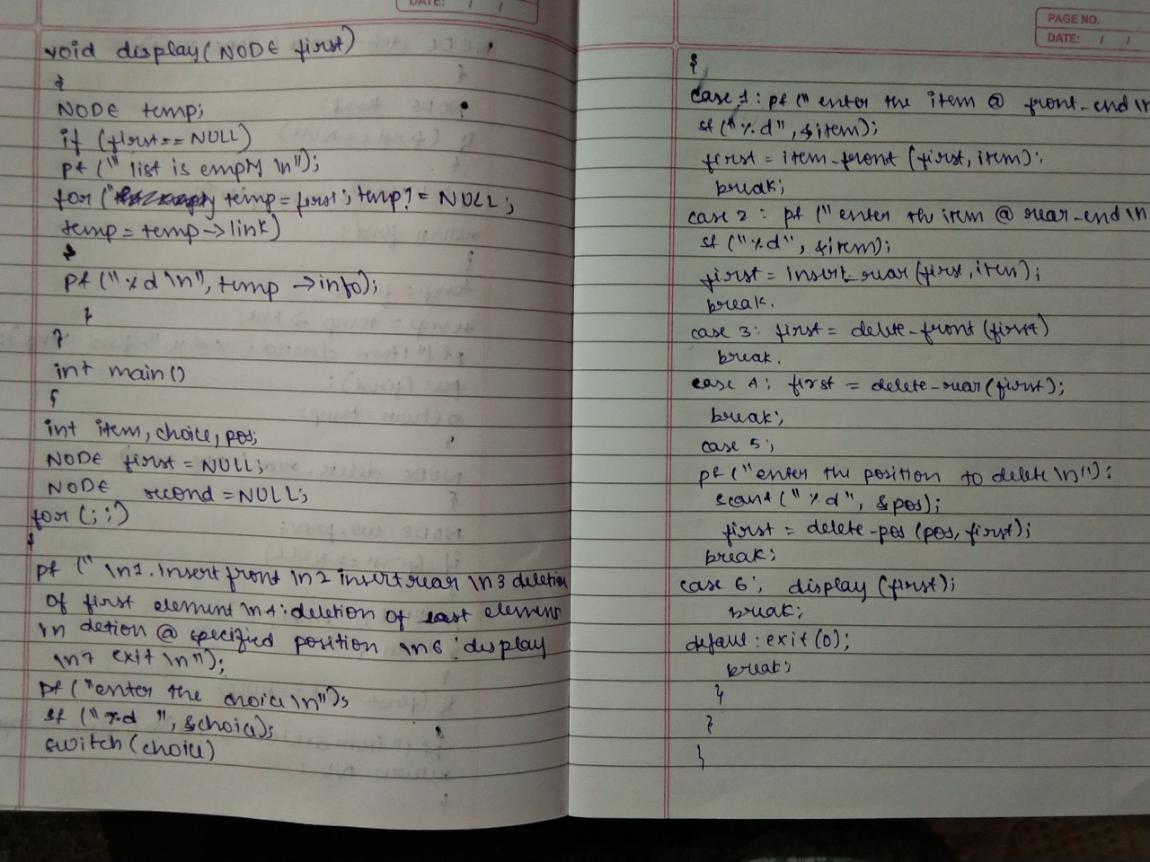 DATE: / /
void display(NODE first)
{
NODE temp;
if (first == NULL)
pf (" list is empty \n");
for ( temp = first ; temp != NULL ;
temp = temp -> link)
{
pf ("%d \n", temp -> info);
}
}
int main()
{
int item, choice, pos;
NODE first = NULL;
NODE second = NULL;
for (;;)
{
pf (" \n1. Insert front \n2 insert rear \n3 deletion
of first element \n4: deletion of last element
\n detion @ specified position \n6 : display
\n7 exit \n");
pf ("enter the choice \n");
sf ("%d ", &choice);
switch (choice)
PAGE NO.
DATE: / /
{
case 1 : pf (" enter the item @ front-end \n
sf ("%d", &item);
first = item-front (first, item);
break;
case 2 : pf ("enter th item @ rear-end \n
sf ("%d", &item);
first = insert-rear (first, item);
break.
case 3: first = delete-front (first)
break.
case 4: first = delete-rear (first);
break;
case 5;
pf ("enter the position to delete \n"):
scanf ("%d", &pos);
first = delete-pos (pos, first);
break;
case 6; display (first);
break;
defaul : exit (0);
break;
}
}
}